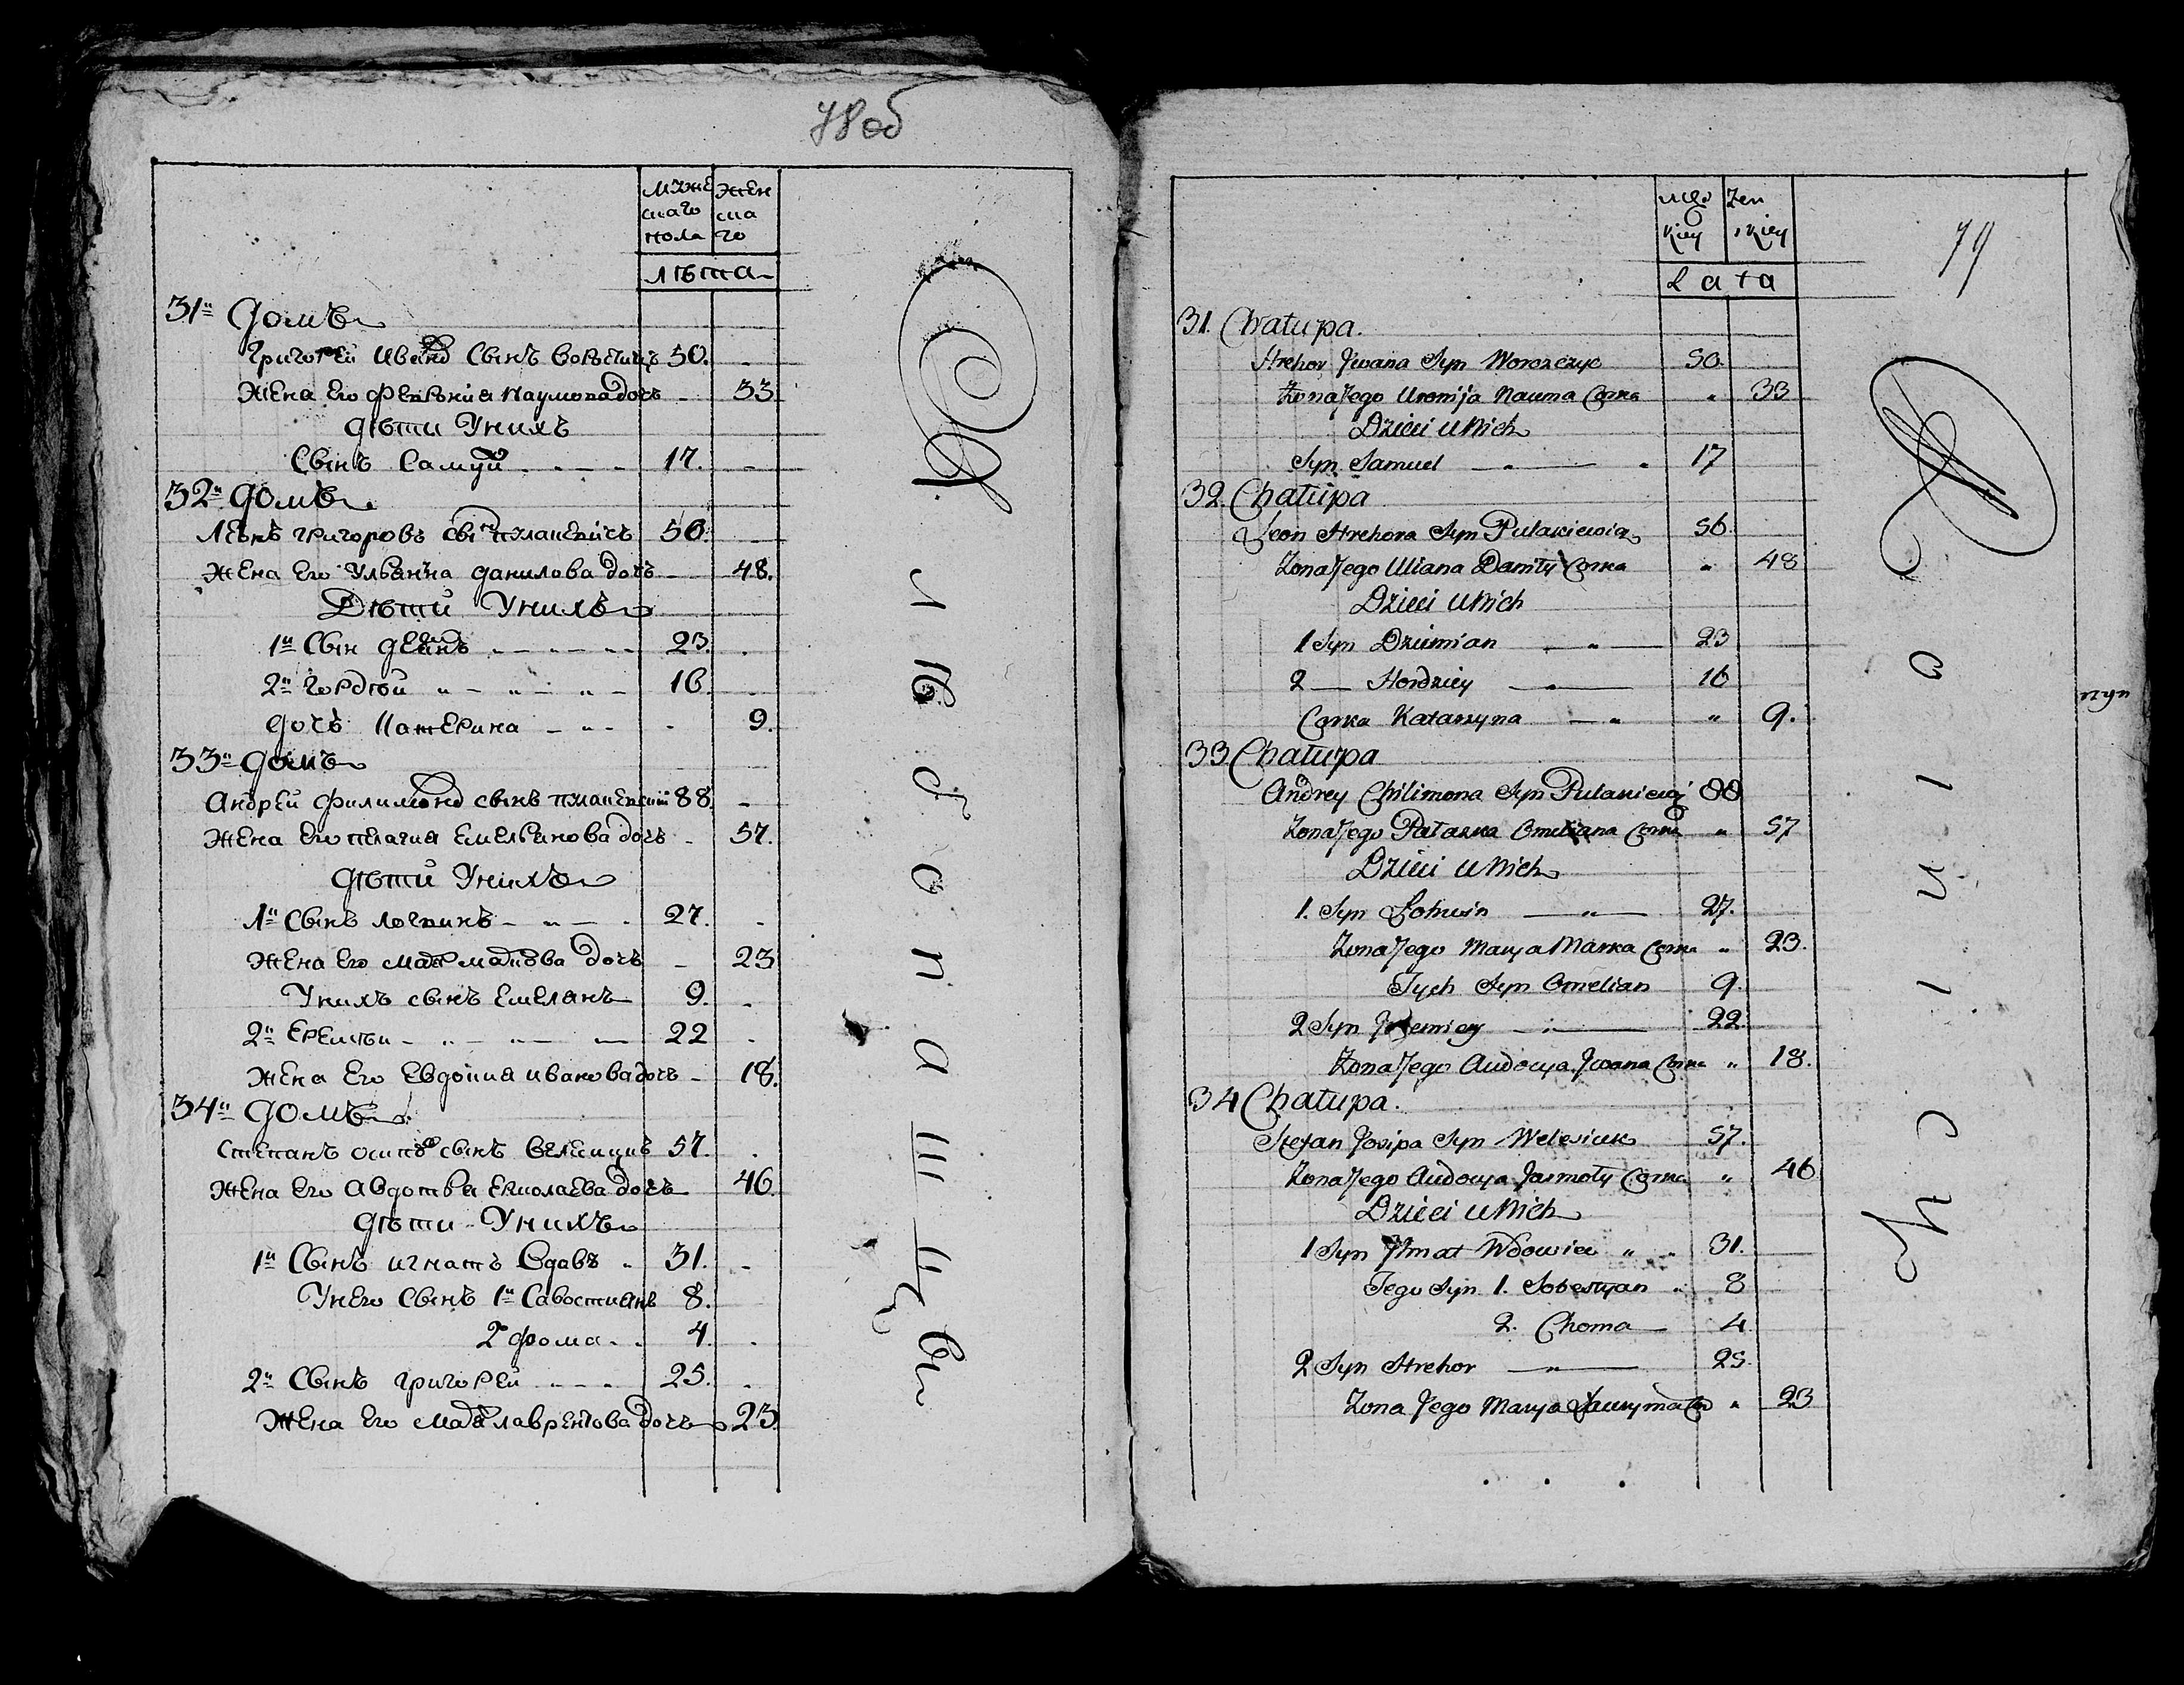 78об
Мужескаго пола
Женскаго
Лѣта
31й Домъ
Григорей Иванов Сынъ 50.
Жена Его Феврониа Наумова дочь - 33
Дѣти У нихъ
Сынъ Самуй 17. -
32й Домъ
Левъ григоровъ сын 56. -
Жена Его Ульянна данилова дочь - 48.
Дѣти У нихъ
1й Сын 23. -
2й Гордѣй 16. -
Дочь Катерина - 9.
33й Домъ
Андрей Филимонов сынъ 88. -
Жена Его пелагия Емельянова дочь - 57.
Дѣти У нихъ
1й Сынъ логвинъ 27. -
Жена Его Маря Маркова дочь - 23
У нихъ сынъ Емелянъ 9. -
2й Еремѣй 22 -
Жена Его Евдокия иванова дочь - 18.
34й Домъ
Степанъ осипов сынъ 57. -
Жена Его Авдотья Ермолаева дочь 46.
Дѣти У нихъ
1й Сынъ игнатъ Вдовъ 31. -
У него Сынъ 1й Савостиянъ 8.
2й фома 4. -
2й Сынъ григорей 25. -
Жена Его Маря лаврентова дочь 23.
79
Męskiey
Zenskiey
Lata
31. Chałupa.
Hrehor Jwana Syn Worozczyc 50.
Zona Jego Uronija Nauma Corka " 33
Dzieci u Nich
Syn Samuel 17
32. Chałupa
Leon Hrehora Syn Pulakiewicz 56.
Zona Jego Uliana Daniły Corka " 48
Dzieci u Nich
1 Syn Dziemian 23
2 — Hordziey 16
Corka Katarzyna " 9.
33 Chałupa
Andrey Chilimona Syn Pulakiewicz 88
Zona Jego Pałaska Omeliana Corka " 57
Dzieci u Nich
1. Syn Lohwin 27.
Zona Jego Marya Marka Corka " 23.
Tych Syn Omelian 9.
2 Syn Jeremiey 22.
Zona Jego Audocya Jwana Corka " 18.
34 Chałupa.
Stefan Josipa Syn Welesiuk 57.
Zona Jego Audocya Jarmoły Corka " 46
Dzieci u Nich
1 Syn Jhnat Wdowiec " 31.
Jego Syn 1. Sobestyan " 8
2. Choma 4
2 Syn Hrehor 25.
Zona Jego Marya Ławryna Co " 23